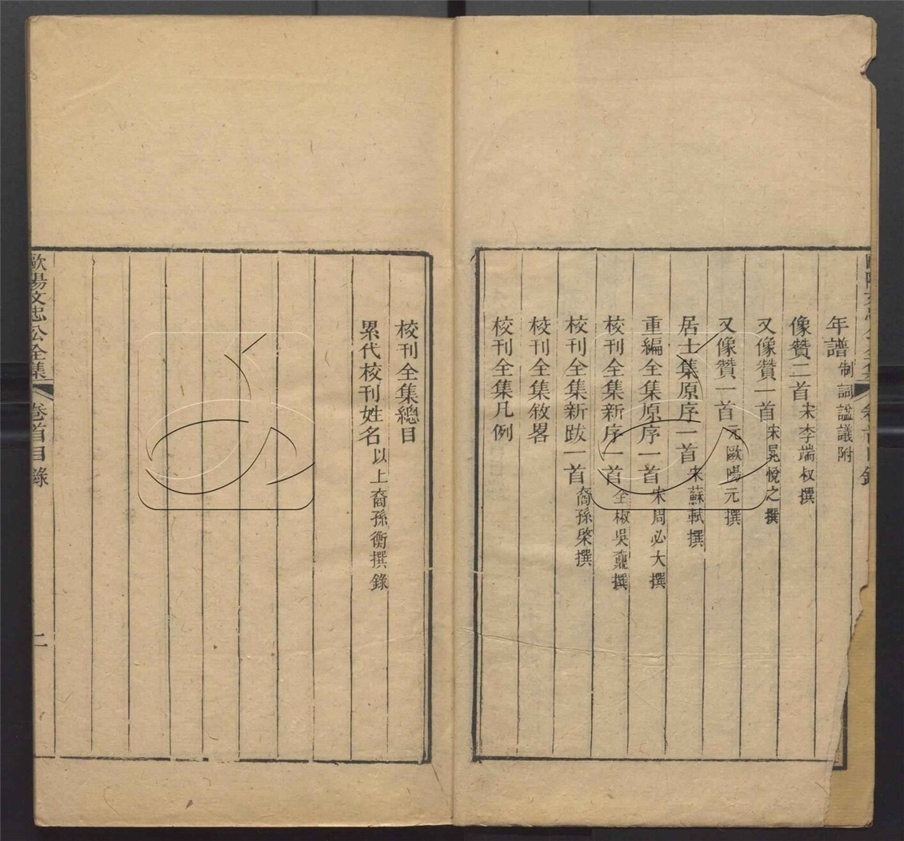 年譜制詞謚議附
像贊二首宋李端叔撰
又像贊一首宋晁悅之撰
又像贊一首元歐陽元撰
居士集原序一首宋蘇軾撰
重編全集原序一首宋周必大撰
校刊全集新序一首全椒吳鼒撰
校刊全集新跋一首裔孫棨撰
校刊全集敘畧
校刊全集凡例
校刊全集總目
累代校刊姓名以上裔孫衡撰錄
歐陽文忠公全集 卷首目錄 二